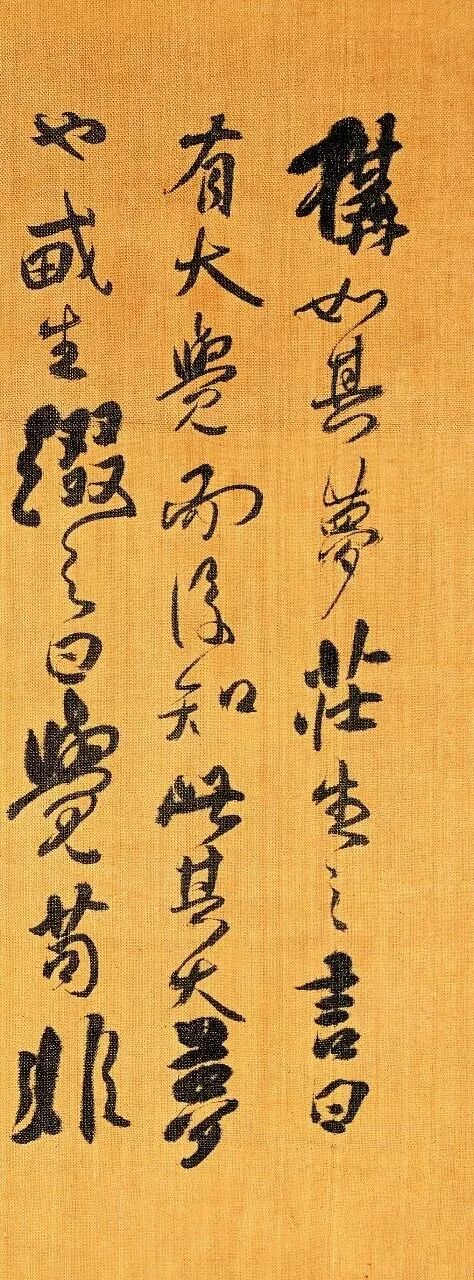 構如其夢莊生之言曰
有大覺而後知此其大夢
也戚生綴之曰覺苟非